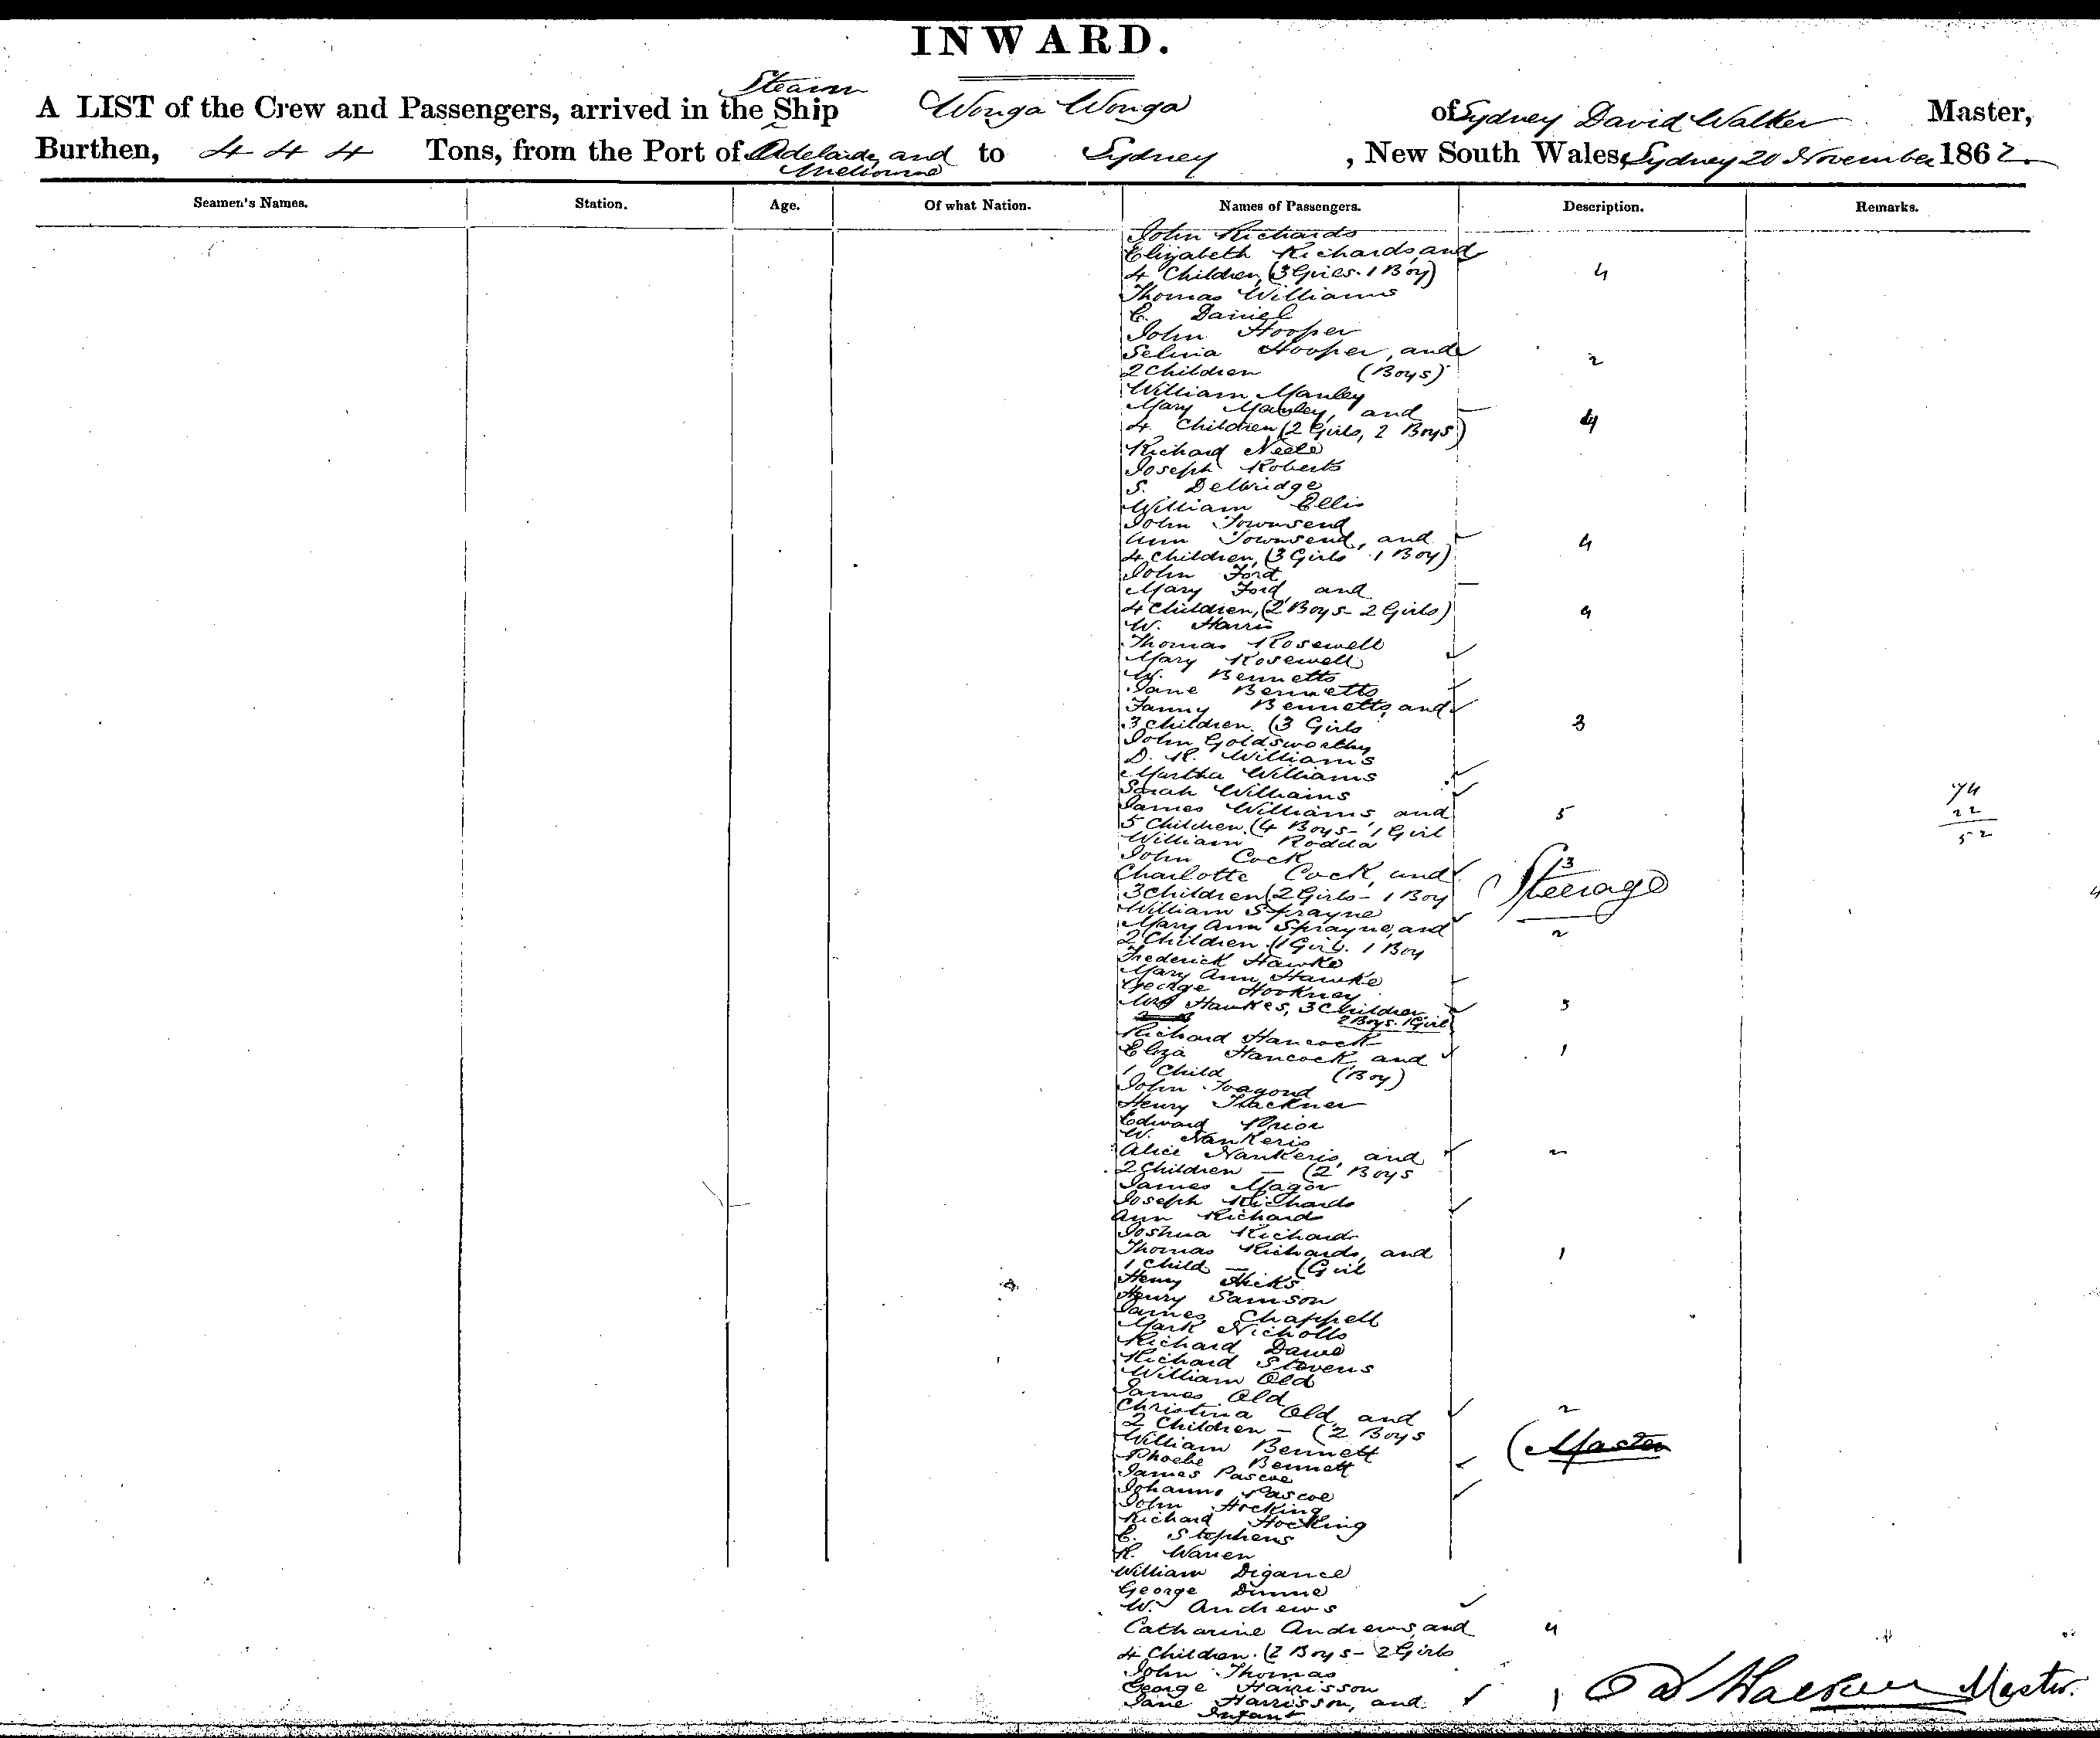 INWARD.
Steam
A LIST of the Crew and Passengers, arrived in the Ship Wonga Wonga of Sydney David Walker Master,
Burthen, 444 Tons, from the Port of Adelaide, and to Sydney, New South Wales, Sydney 20 November 1862
Melbourne
Seamen's Names. Station. Age. Of what Nation. Names of Passengers. Description. Remarks.
John Richards
Elizabeth Richards, and
4 Children, (3 Girls. 1 Boy) 4
Thomas Williams
C. Daniel
John Hooper
Selina Hooper, and 2
2 Children (Boys)
William Manley
Mary Manley, and
4 Children (2 Girls, 2 Boys) 4
Richard Neele
Joseph Roberts
S. Delbridge
William Ellis
John Townsend
Ann Townsend, and 4
4 Children, (3 Girls 1 Boy)
John Ford
Mary Ford, and
4 Children, (2 Boys - 2 Girls) 4
W. Harris
Thomas Rosewell
Mary Rosewell
W. Bennetts
Jane Bennetts
Fanny Bennetts, and
3 Children. (3 Girls 3
John Goldsworthy
D. H. Williams
Martha Williams
Sarah Williams 74
James Williams, and 5 22
5 Children. (4 Boys - 1 Girl 52
William Rodda
John Cock 3
Charlotte Cock, and Steerage
3 Children (2 Girls - 1 Boy
William Sprayne
Mary Ann Sprayne, and 2
2 Children. (1 Girl. 1 Boy
Frederick Hawke
Mary Ann Hawke
George Hookney
Mrs Hawkes, 3 Children 3
2 Boys. 1 Girl
Richard Hancock
Eliza Hancock, and 1
1 Child (Boy)
John
Henry Thackner
Edward Prior
W. Nankeris
Alice Nankeris, and 2
2 Children — (2 Boys
James Magor
Joseph Richards
Ann Richards
Joshua Richards
Thomas Richards, and 1
1 Child — (Girl
Henry Hicks
Henry Samson
James Chappell
Mark Nicholls
Richard Dawe
Richard Stevens
William Old
James Old
Christina Old, and 2
2 Children — (2 Boys
William Bennett (Master
Phoebe Bennett
James Pascoe
Johanna Pascoe
John Hocking
Richard Hocking
C. Stephens
R. Warren
William Digance
George Dunne
W. Andrews
Catharine Andrews, and 4
4 Children. (2 Boys - 2 Girls
John Thomas
George Harrisson
Jane Harrisson, and 1 Dd Walker Master.
Infant